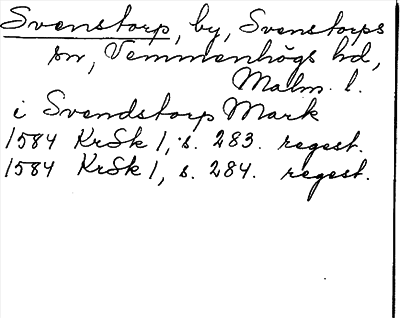 Svenstorp, by, Svenstorps
sn, Vemmenhögs hd,
Malm. l.
i Svendstorp Mark
1584 KrSk 1, s. 283. regest.
1584 KrSk 1, s. 284. regest.